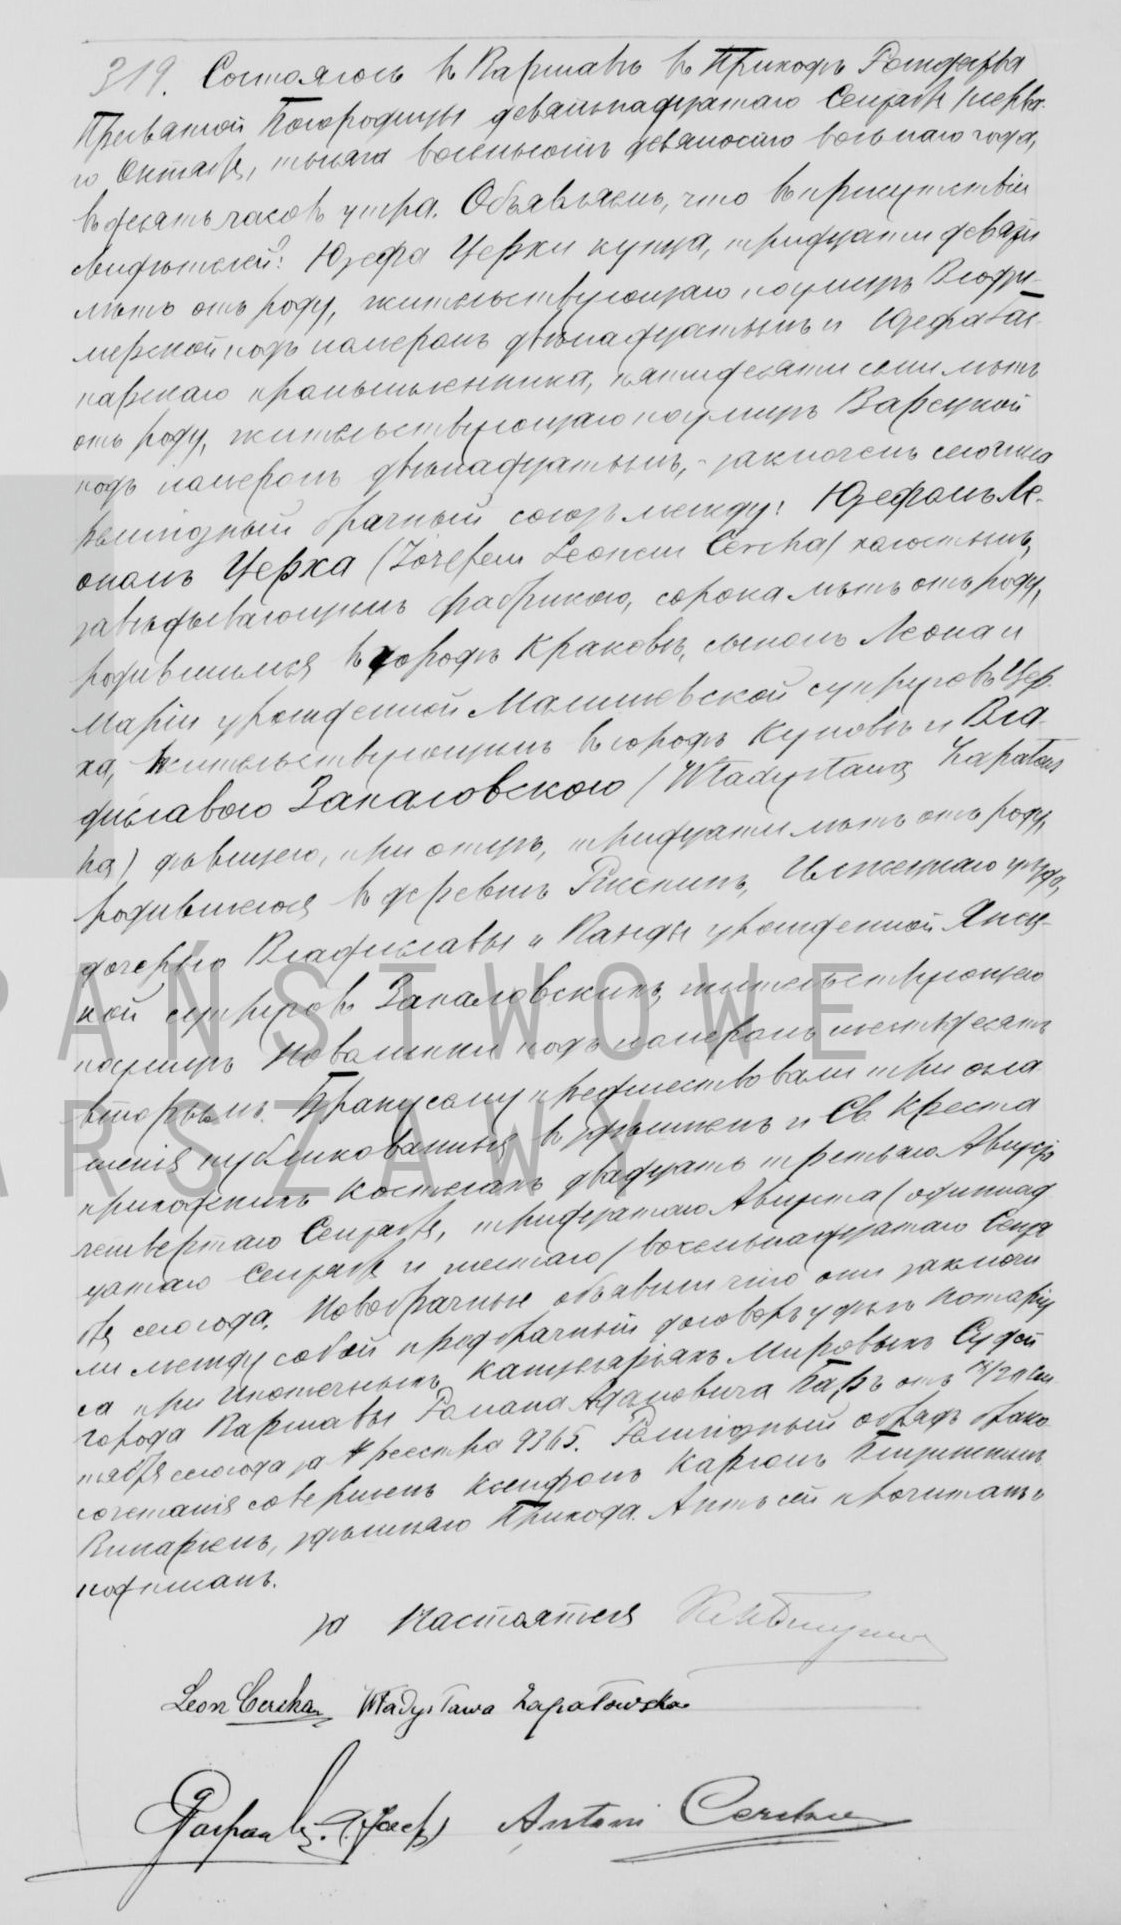 319. Состоялось въ Варшавѣ въ Приходѣ Рождества
Пресвятой Богородицы девятьнадцатаго Сентября /перва-
го Октября, тысяча восемьсотъ девяносто восьмаго года,
въ десять часовъ утра. Объявляемъ, что въ присутствіи
свидѣтелей: Юзефа Церхи купца, тридцати девяти
лѣтъ отъ роду, жительствующаго по улицѣ Влодзи-
мерской подъ номеромъ двѣнадцатымъ и Юзефа
промышленника, пятидесяти семи лѣтъ
отъ роду, жительствующаго по улицѣ Варецкой
подъ номеромъ двѣнадцатымъ, - заключенъ сего числа
религіозный брачный союзъ между: Юзефомъ Ле-
ономъ Церха (Józefem Leonem Cercha) холостымъ,
завѣдывающимъ фабрикою, сорока лѣтъ отъ роду,
родившимся въ городѣ Краковѣ, сыномъ Леона и
Маріи урожденной Малишевской супруговъ Цер-
ха, жительствующимъ въ городѣ и Вла-
диславою Запаловскою (Władysławą Zapałows
ką) дѣвицею, при отцѣ, тридцати лѣтъ отъ роду,
родившеюся въ деревнѣ Илжецкаго уѣзда,
дочерью Владиславы и Ванды урожденной
супруговъ Запаловскихъ, жительствующею
по улицѣ подъ номеромъ шестьдесятъ
вторымъ. Браку сему предшествовали три огла
шенія публикованныя въ здѣшнемъ и Св. Креста
приходскихъ костелахъ двадцать третьяго Августа
четвертаго Сентября, тридцатаго Августа (одиннад
цатаго Сентября и шестаго / восемьнадцатаго Сентя
бря сего года. Новобрачные объявили что они заключи
ли между собой предбрачный договоръ у дѣлъ Нотаріу
са при Ипотечныхъ Канцеляріяхъ Мировыхъ Судей
города Варшавы Романа Адамовича отъ Сен
тября сего года за № реестра 9365. Религіозный обрядъ брако
сочетанія совершенъ Ксендзомъ Карломъ
Викаріемъ, здѣшняго Прихода. Актъ сей прочитанъ и
подписанъ.
за Настоятеля
Leon Cercha Władysława Zapałowska
Józef Antoni Cercha